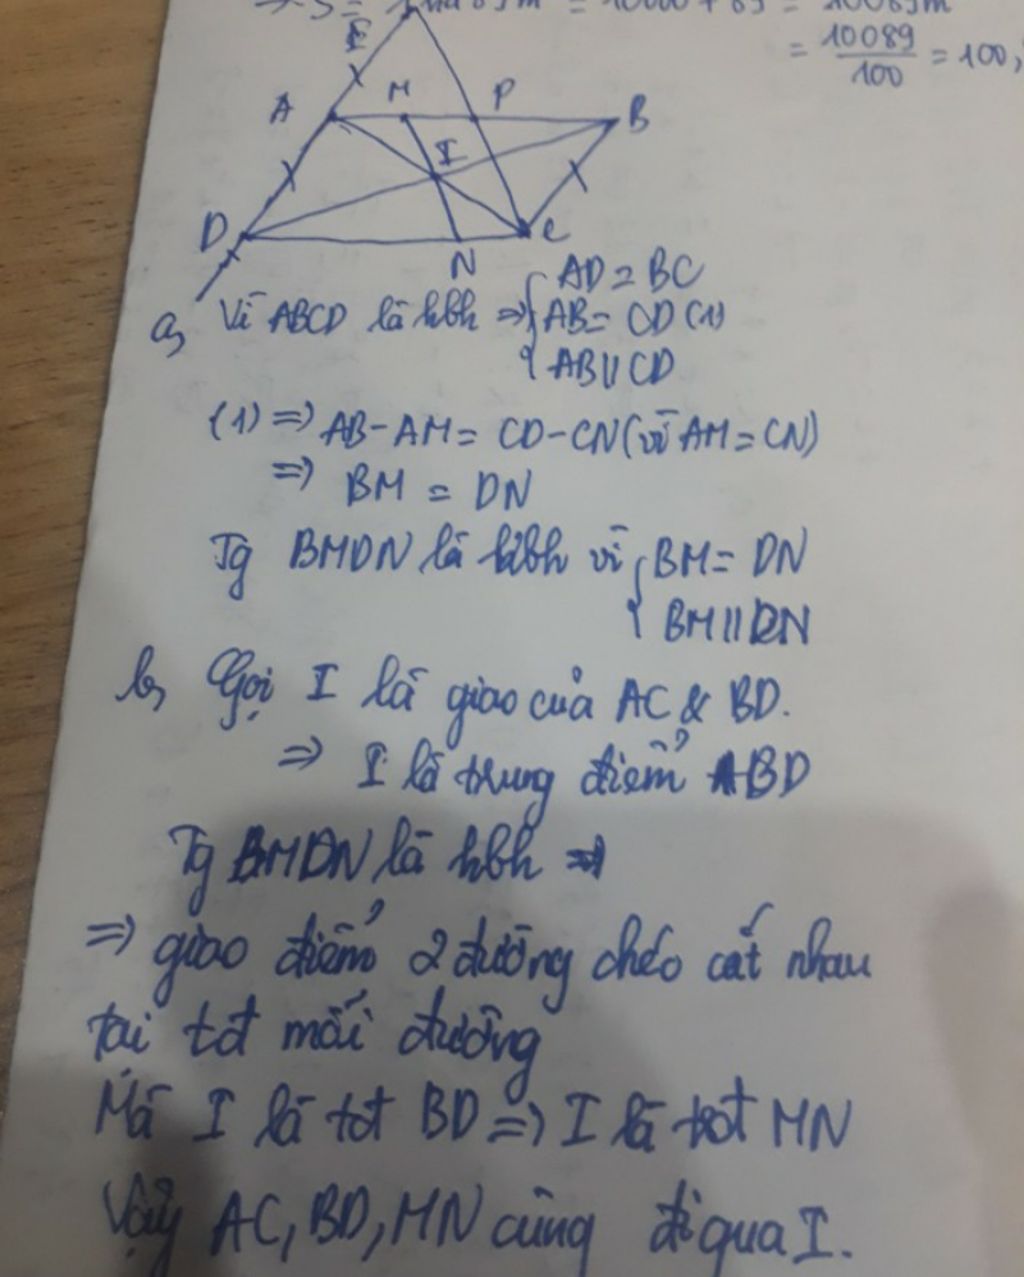 = 10089/100 = 100,
E
A M P B
I
D N C
a, Vì ABCD là hbh => { AD = BC
AB = CD (1)
AB // CD
(1) => AB - AM = CD - CN (vì AM = CN)
=> BM = DN
Tg BMDN là hbh vì { BM = DN
BM // DN
b, Gọi I là giao của AC & BD.
=> I là trung điểm BD
Tg BMDN là hbh =>
=> giao điểm 2 đường chéo cắt nhau
tại tđ mỗi đường
Mà I là tđ BD => I là tđ MN
Vậy AC, BD, MN cùng đi qua I.